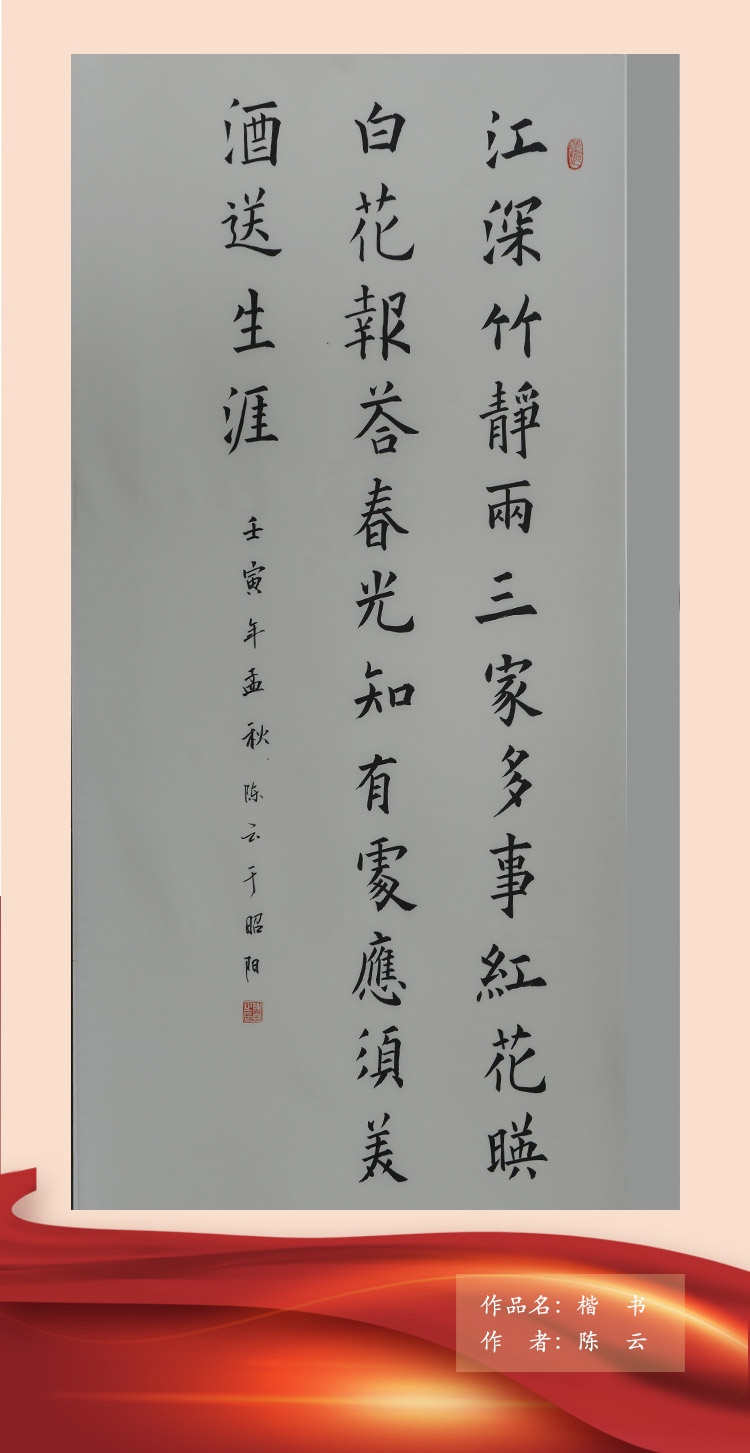 江深竹靜兩三家多事紅花暎
白花報荅春光知有處應須美
酒送生涯
壬寅年孟秋陈云于昭阳
作品名：楷 书
作 者：陈 云